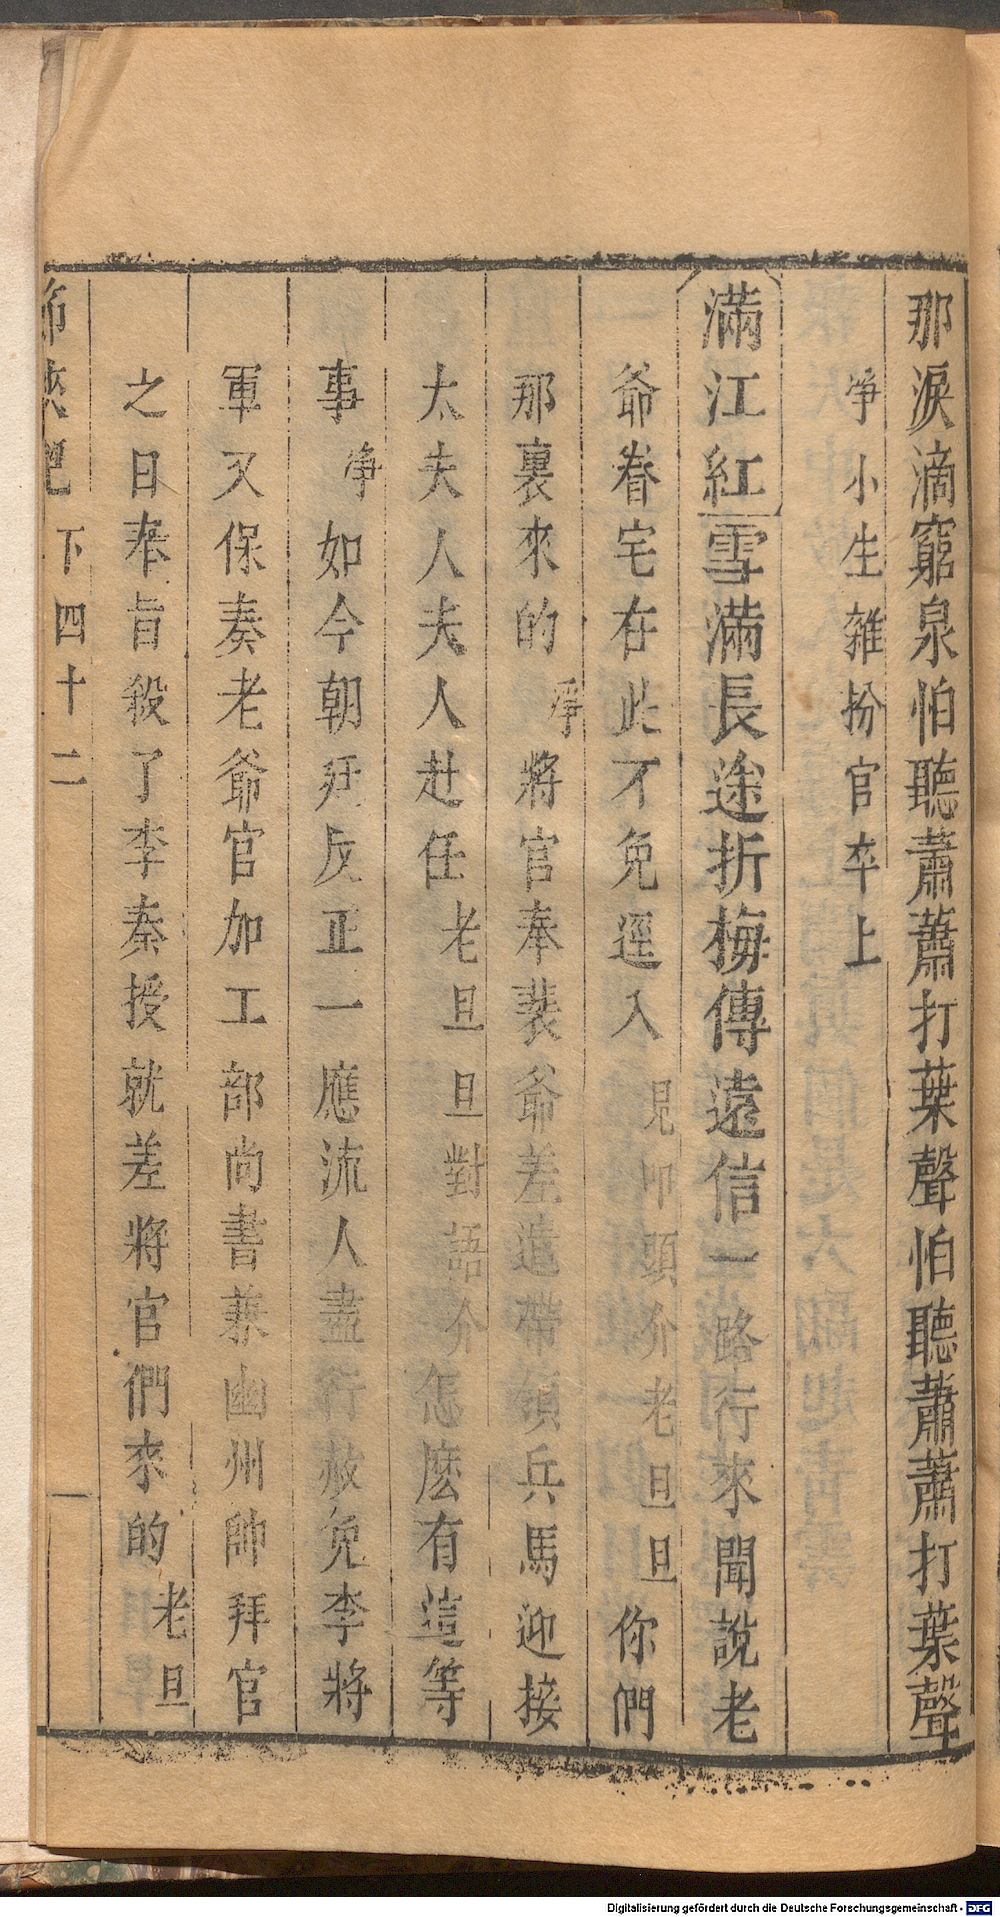 那淚滴窮泉怕聽蕭蕭打葉聲怕聽蕭蕭打葉聲
淨小生雜扮官卒上
滿江紅雪滿長途折梅傳遠信一路行來聞說老
爺眷宅在此不免逕入見叩頭介老旦旦你們
那裏來的淨將官奉裴爺差遣帶領兵馬迎接
太夫人夫人赴任老旦旦對語介怎麽有這等
事淨如今朝廷反正一應流人盡行赦免李將
軍又保奏老爺官加工部尚書兼幽州帥拜官
之日奉旨殺了李秦授就差將官們來的老旦
節俠記 下 四十二
Digitalisierung gefördert durch die Deutsche Forschungsgemeinschaft - DFG